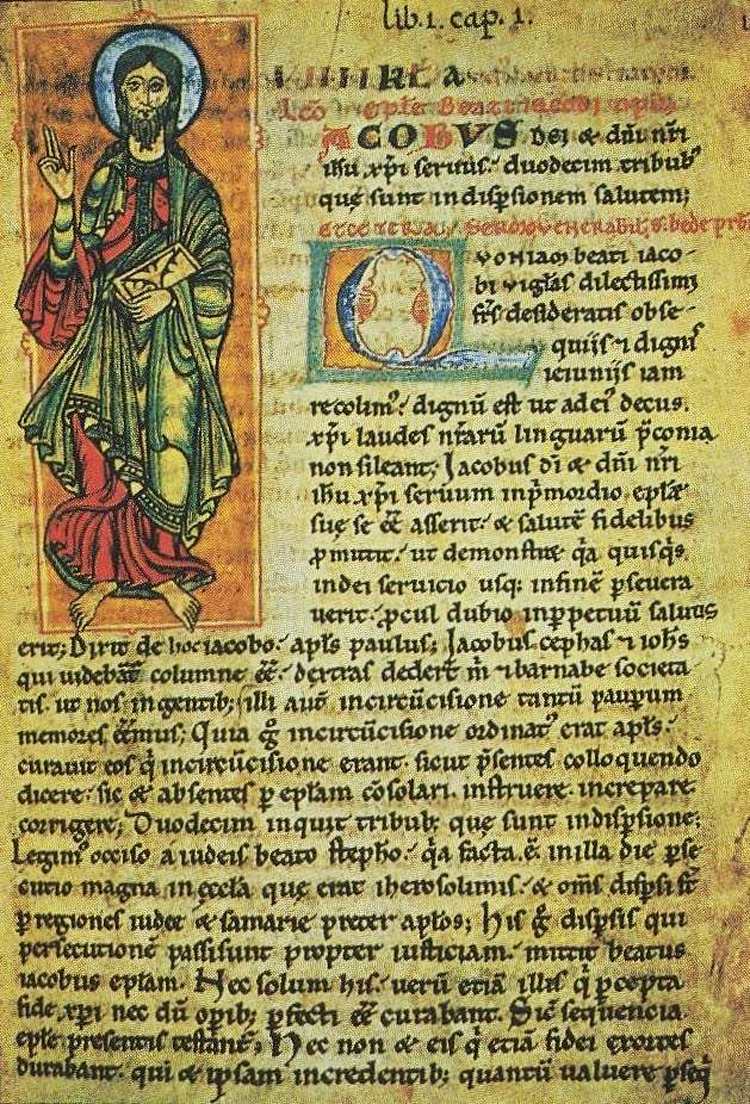 lib. 1. cap. 1.
KŁ A
Lcō eple Beati iacobi apłi
IACOBVS DEI & dn̄i nr̄i
ihu xp̄i seruus. duodecim tribubꝰ
quę sunt in disp̄sionem salutem;
ET CETERA. SERMO VENERABILIS bede prb̄i
QVONIAM beati iaco-
bi vigłas dilectissimi
fr̄s desideratis obse-
quiis ⁊ dignis
ieiuniis iam
recolimꝰ. dignū est ut ad eiꝰ decus.
xp̄i laudes nr̄arū linguarū p̄conia
non sileant; Jacobus dī & dn̄i nr̄i
ihu xp̄i seruum in p̄mordio epłæ
suę se eē̄ asserit. & salutē fidelibus
ꝓmittit. ut demonstret q̄a quisq̄s
in dei seruicio usq; in finē p̄seuera
uerit. ꝓcul dubio in ꝑpetuū saluus
erit; Dixit de hoc iacobo. apłs paulus; Jacobus cephas ⁊ iohs̄
qui uidebāt̄ columne eē̄. dextras dedert̄ m̄ ⁊ barnabe societa
tis. ut nos in gentib; illi aut̄ in circūcisione tantū pauperum
memores eēmus; Quia g̊ in circūcisione ordinatꝰ erat apłs.
curauit eos q̄ in circūcisione erant. sicut p̄sentes colloquendo
dicere. sic & absentes ꝑ epłam cōsolari. instruere. increpare.
corrigere; Duodecim inquit tribub; quę sunt in disp̄sione;
Legimꝰ occiso a iudeis beato stepho. q̄a facta. ē. in illa die ꝑse
cutio magna in ęccła que erat iherosolimis. & om̄s disp̄si st̄
ꝑ regiones iudee & samarie preter apłos; His g̊ disp̄sis qui
persecutionē passi sunt propter iusticiam. mittit beatus
iacobus epłam. Nec solum his. uerū etiā illis q̄ ꝑcepta
fide xp̄i nec dū oꝑib; ꝑfecti eē̄ curabant. Sic̄ sequencia
epłe presentis testant̄; Nec non & eis q̄ etiā fidei exortes
durabant. qui & ipsam in credentib; quantū ualuere ꝑseq̄